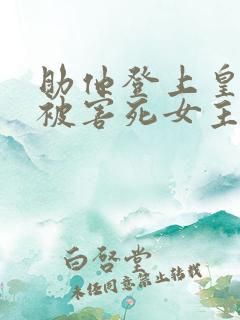 助他登上皇
被害死女主
白啓堂
未经同意禁止转载